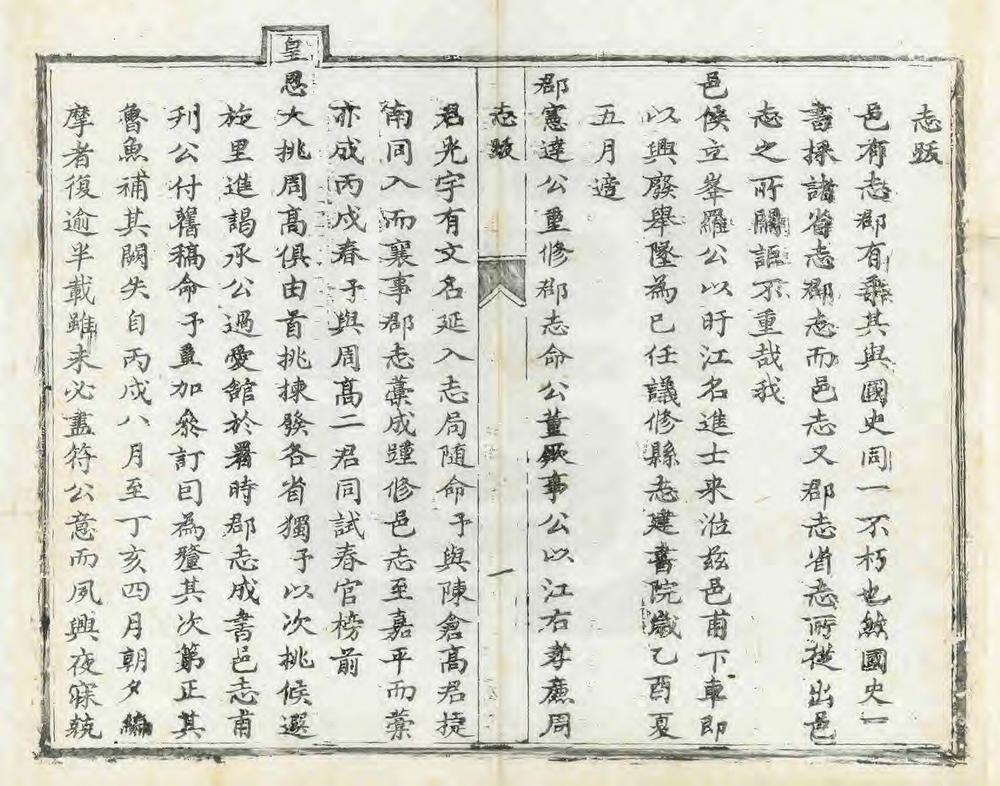 志跋
邑有志郡有乘其與國史同一不朽也然國史一
書採諸省志郡志而邑志又郡志省志所從出邑
志之所關詎不重哉我
邑侯立峯羅公以盱江名進士来涖茲邑甫下車即
以興廢舉墜為己任議修縣志建書院歲乙酉夏
五月適
郡憲達公重修郡志命公董厥事公以江右孝廉周
志跋
一
君光宇有文名延入志局随命予與陳倉高君捷
南同入而襄事郡志藁成踵修邑志至嘉平而藁
亦成丙戍春予與周高二君同試春官榜前
皇恩大挑周高俱由首挑揀發各省獨予以次挑候選
旋里進謁承公過愛舘於署時郡志成書邑志甫
刋公付舊稿命予重加叅訂曰為釐其次第正其
魯魚補其闕失自丙戍八月至丁亥四月朝夕編
摩者復逾半載雖未必盡符公意而夙興夜寐兢